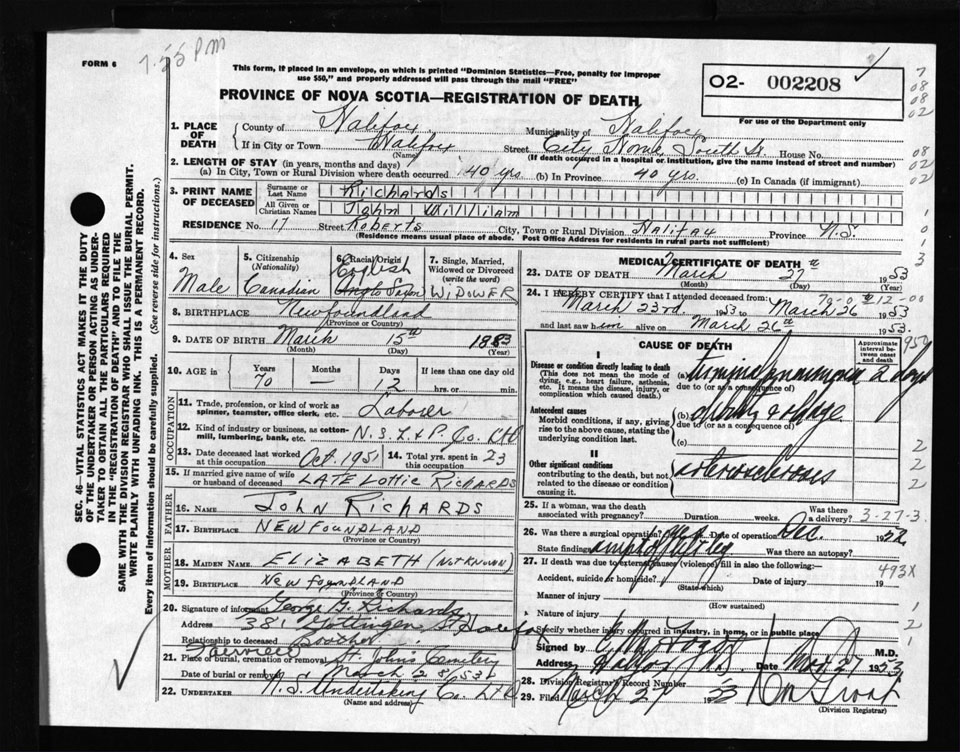 7.55 PM
FORM 6
This form, if placed in an envelope, on which is printed "Dominion Statistics—Free, penalty for improper
use $50," and properly addressed will pass through the mail "FREE"
PROVINCE OF NOVA SCOTIA—REGISTRATION OF DEATH
02- 002208
For use of the Department only
1. PLACE OF DEATH
County of Halifax Municipality of Halifax
If in City or Town Halifax Street City Home, South St. House No.
(Name) (If death occurred in a hospital or institution, give name instead of street and number)
2. LENGTH OF STAY (in years, months and days)
(a) In City, Town or Rural Division where death occurred 40 yrs. (b) In Province 40 yrs. (c) In Canada (if immigrant)
3. PRINT NAME OF DECEASED
Surname or Last Name Richards
All Given or Christian Names John William
RESIDENCE No. 17 Street Roberts City, Town or Rural Division Halifax Province N.S.
(Residence means usual place of abode. Post Office Address for residents in rural parts not sufficient)
4. Sex Male
5. Citizenship (Nationality) Canadian
6. Racial Origin English Anglo Saxon
7. Single, Married, Widowed or Divorced (write the word) WIDOWER
8. BIRTHPLACE Newfoundland
(Province or Country)
9. DATE OF BIRTH March 15th 1883
(Month) (Day) (Year)
10. AGE in Years 70 Months — Days 12 If less than one day old hrs. or min.
OCCUPATION
11. Trade, profession, or kind of work as spinner, teamster, office clerk, etc. Laborer
12. Kind of industry or business, as cotton-mill, lumbering, bank, etc. N.S. L. & P. Co. Ltd
13. Date deceased last worked at this occupation Oct. 1951
14. Total yrs. spent in this occupation 23
15. If married give name of wife or husband of deceased LATE LOTTIE RICHARDS
FATHER
16. NAME JOHN RICHARDS
17. BIRTHPLACE NEWFOUNDLAND
(Province or Country)
MOTHER
18. MAIDEN NAME ELIZABETH (NOT KNOWN)
19. BIRTHPLACE NEWFOUNDLAND
(Province or Country)
20. Signature of informant George G. Richards
Address 381 Gottingen St Halifax
Relationship to deceased Brother
Fairview
21. Place of burial, cremation or removal St. John's Cemetery
Date of burial or removal March 28/53
22. UNDERTAKER N.S. Undertaking Co. Ltd
(Name and address)
MEDICAL CERTIFICATE OF DEATH
23. DATE OF DEATH March 27th 1953
24. I HEREBY CERTIFY that I attended deceased from:
March 23rd. 1953 to March 26 1953
and last saw him alive on March 26th 1953.
CAUSE OF DEATH
Approximate interval between onset and death
I
Disease or condition directly leading to death
(This does not mean the mode of dying, e.g., heart failure, asthenia, etc. It means the disease, injury, or complication which caused death.)
(a) terminal pneumonia 2 days
due to (or as a consequence of)
Antecedent causes
Morbid conditions, if any, giving rise to the above cause, stating the underlying condition last.
(b) debility & old age
due to (or as a consequence of)
(c)
II
Other significant conditions
contributing to the death, but not related to the disease or condition causing it.
arteriosclerosis
25. If a woman, was the death associated with pregnancy? Duration weeks. Was there a delivery?
3-27-3.
26. Was there a surgical operation? Date of operation Dec. 1952
State findings Was there an autopsy?
27. If death was due to external causes (violence) fill in also the following:
493X
Accident, suicide or homicide? Date of injury 19
(State which)
Manner of injury
(How sustained)
Nature of injury
Specify whether injury occurred in industry, in home, or in public place
Signed by M.D.
Address Halifax N.S. Date Mar 27 1953
28. Division Registrar's Record Number
29. Filed March 27 1953
(Division Registrar)
SEC. 46—VITAL STATISTICS ACT MAKES IT THE DUTY
OF THE UNDERTAKER OR PERSON ACTING AS UNDER-
TAKER TO OBTAIN ALL THE PARTICULARS REQUIRED
IN THE "REGISTRATION OF DEATH" AND TO FILE THE
SAME WITH THE DIVISION REGISTRAR WHO SHALL ISSUE THE BURIAL PERMIT.
WRITE PLAINLY WITH UNFADING INK. THIS IS A PERMANENT RECORD.
Every item of information should be carefully supplied. (See reverse side for instructions.)